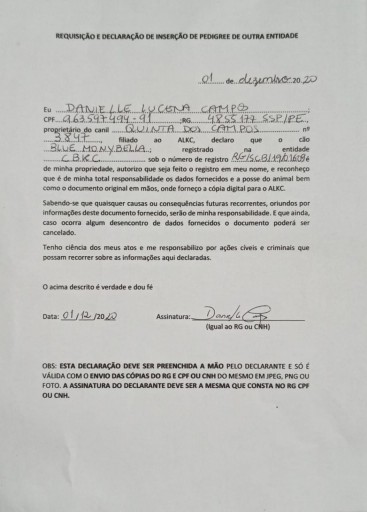 REQUISIÇÃO E DECLARAÇÃO DE INSERÇÃO DE PEDIGREE DE OUTRA ENTIDADE
01 de dezembro 2020
Eu DANIELLE LUCENA CAMPOS
CPF 963597494-91 RG 4855177 SSP/PE,
proprietário do canil QUINTA DOS CAMPOS nº
3847, filiado ao ALKC, declaro que o cão
BLUE MONYBELLA, registrado na entidade
CBKC sob o número de registro é
de minha propriedade, autorizo que seja feito o registro em meu nome, e reconheço
que é de minha total responsabilidade os dados fornecidos e a posse do animal bem
como o documento original em mãos, onde forneço a cópia digital para o ALKC.
Sabendo-se que quaisquer causas ou consequências futuras recorrentes, oriundos por
informações deste documento fornecido, serão de minha responsabilidade. E que ainda,
caso ocorra algum desencontro de dados fornecidos o documento poderá ser
cancelado.
Tenho ciência dos meus atos e me responsabilizo por ações cíveis e criminais que
possam recorrer sobre as informações aqui declaradas.
O acima descrito é verdade e dou fé
Data: 01/12/2020 Assinatura:
(igual ao RG ou CNH)
OBS: ESTA DECLARAÇÃO DEVE SER PREENCHIDA A MÃO PELO DECLARANTE E SÓ É
VÁLIDA COM O ENVIO DAS CÓPIAS DO RG E CPF OU CNH DO MESMO EM JPEG, PNG OU
FOTO. A ASSINATURA DO DECLARANTE DEVE SER A MESMA QUE CONSTA NO RG CPF
OU CNH.